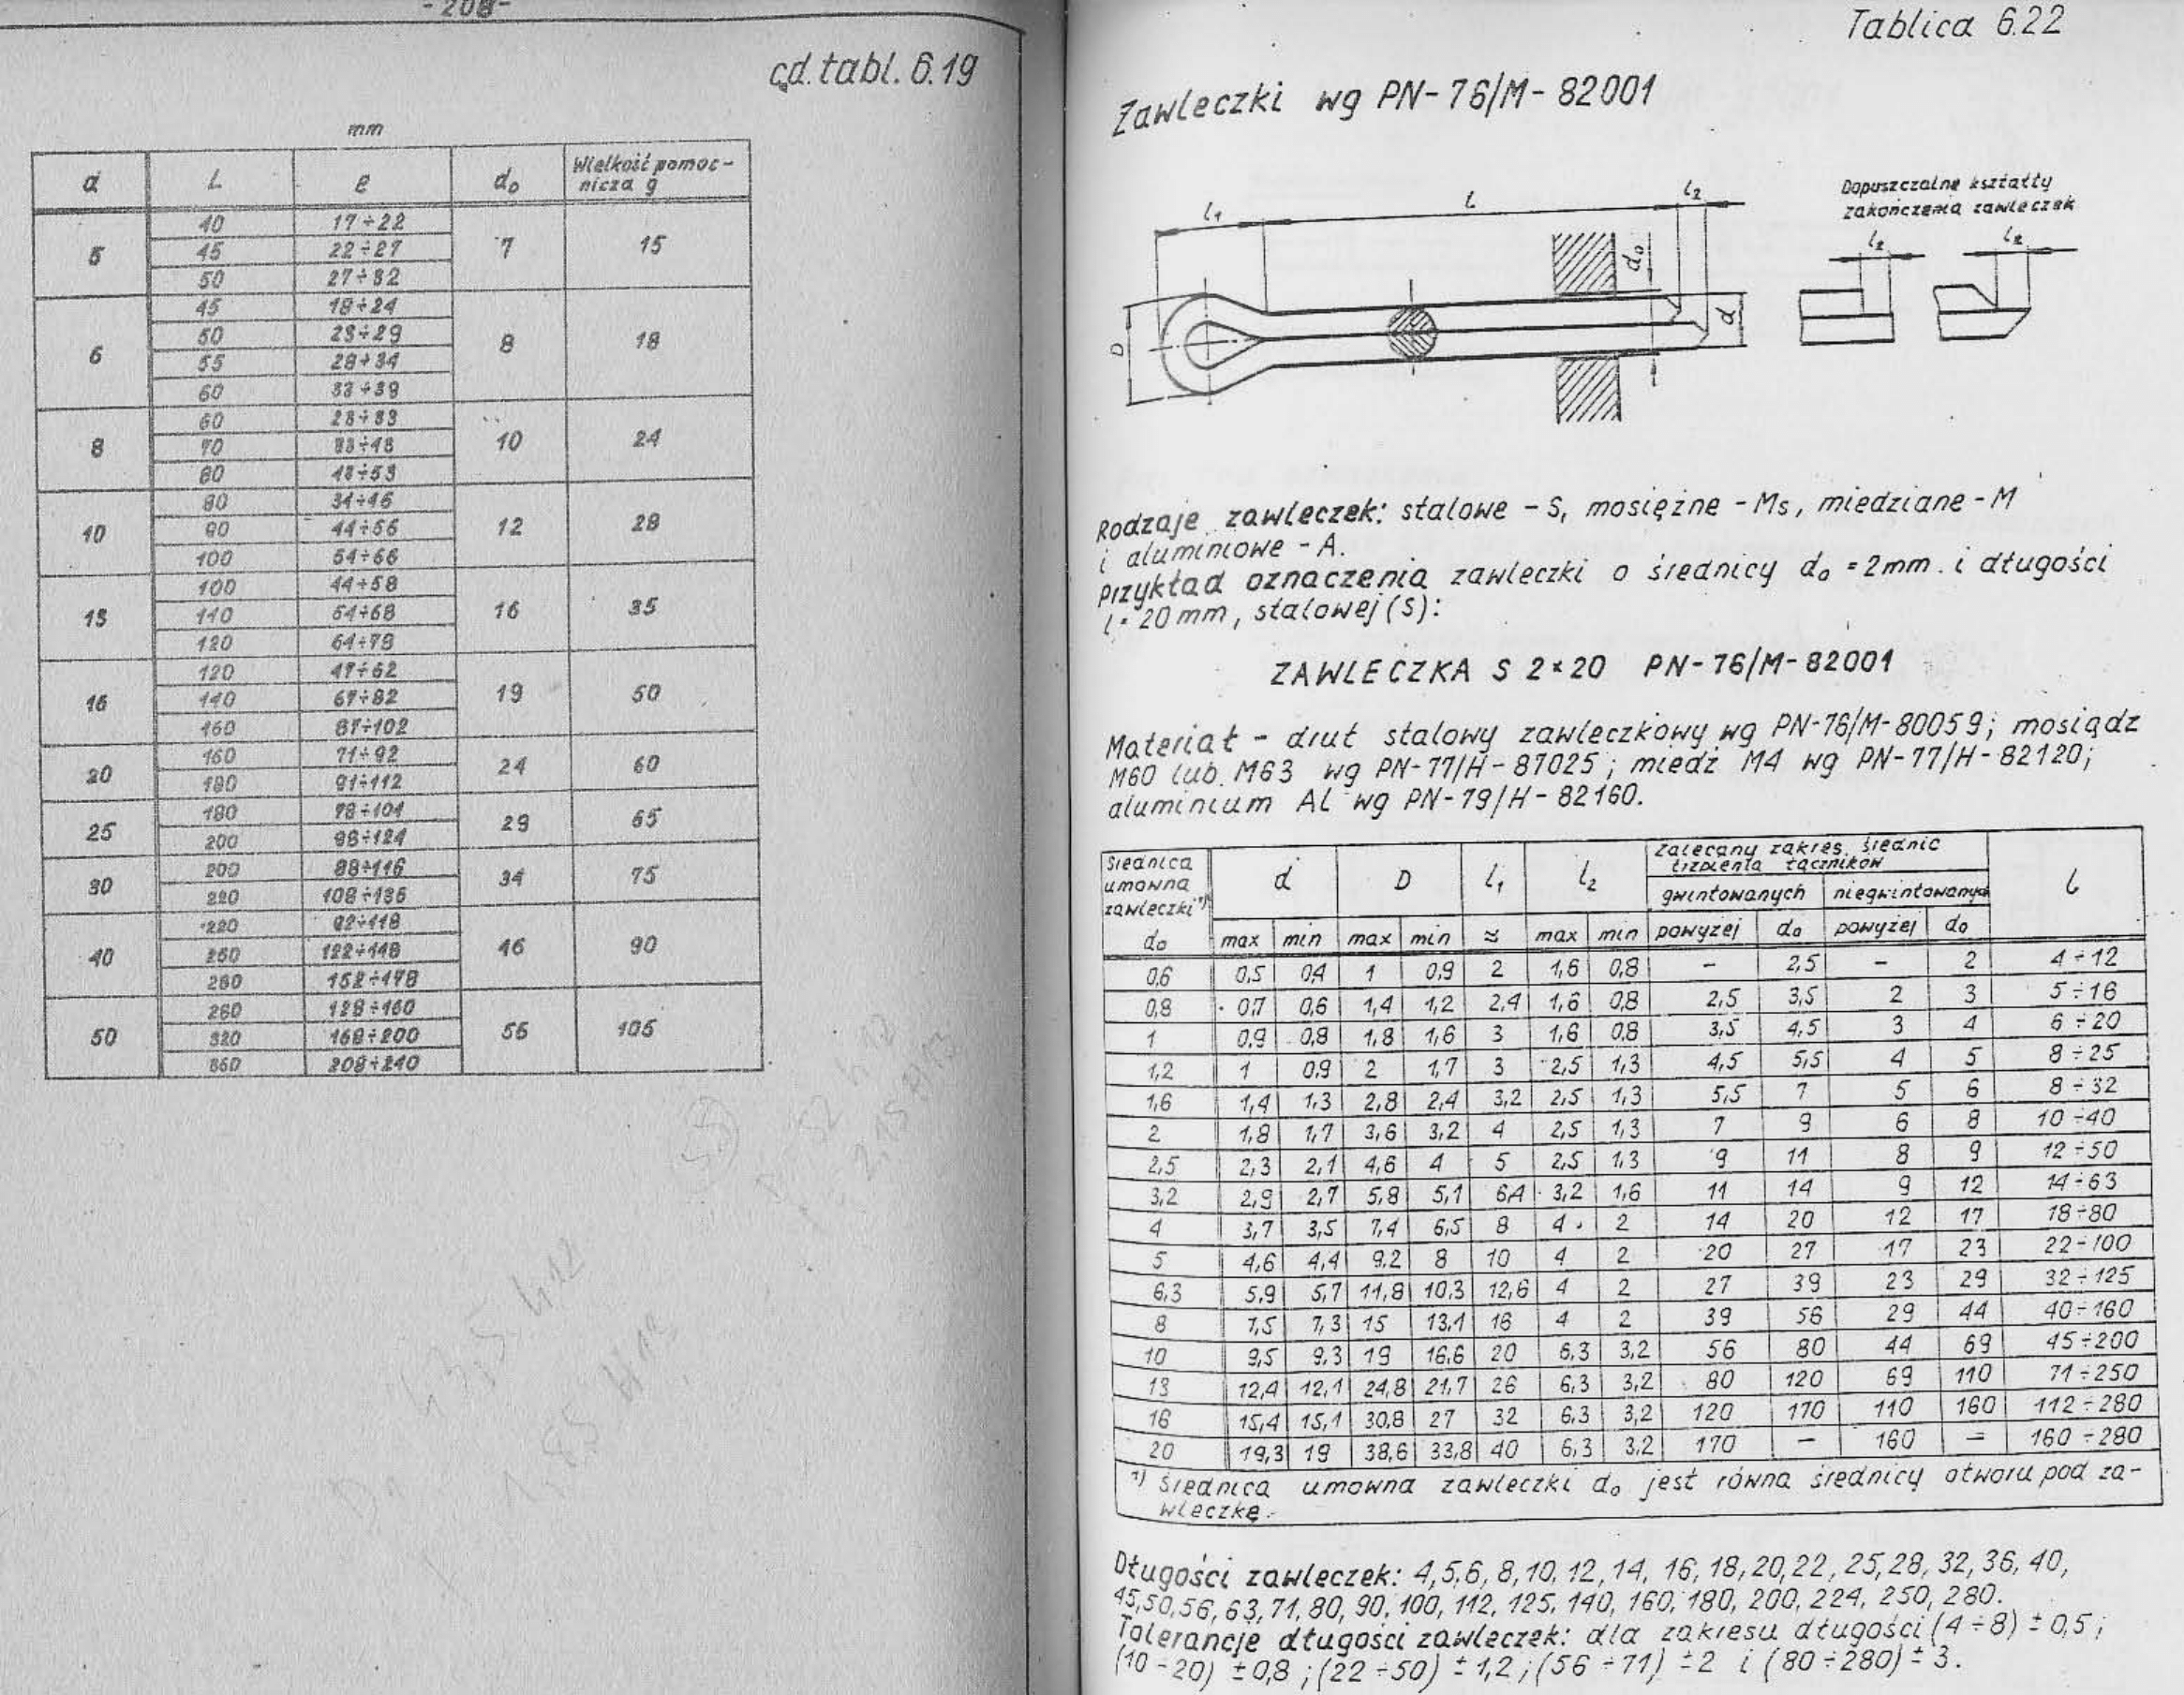 - 208 -
cd. tabl. 6.19
mm
d L e d₀ Wielkość pomoc-
nicza g
5 40 17÷22 7 15
45 22÷27
50 27÷32
6 45 18÷24 8 18
50 23÷29
55 28÷34
60 33÷39
8 60 28÷33 10 24
70 33÷43
80 43÷53
10 80 34÷46 12 28
90 44÷56
100 54÷66
13 100 44÷58 16 35
110 54÷68
120 64÷78
16 120 47÷62 19 50
140 67÷82
160 87÷102
20 160 71÷92 24 60
180 91÷112
25 180 78÷104 29 65
200 98÷124
30 200 88÷116 34 75
220 108÷136
40 220 92÷118 46 90
250 122÷148
280 152÷178
50 260 128÷160 56 105
320 168÷200
360 208÷240
Tablica 6.22
Zawleczki wg PN-76/M-82001
l₁ l l₂ d₀ d D
Dopuszczalne kształty
zakończenia zawleczek
l₂ l₂
Rodzaje zawleczek: stalowe - S, mosiężne - Ms, miedziane - M
i aluminiowe - A.
Przykład oznaczenia zawleczki o średnicy d₀ = 2mm i długości
l = 20 mm, stalowej (S):
ZAWLECZKA S 2×20 PN-76/M-82001
Materiał - drut stalowy zawleczkowy wg PN-76/M-80059; mosiądz
M60 lub M63 wg PN-77/H-87025; miedź M4 wg PN-77/H-82120;
aluminium Al wg PN-79/H-82160.
Średnica umowna zawleczki ¹⁾ d₀ d D l₁ l₂ Zalecany zakres średnic trzpienia łączników l
gwintowanych niegwintowanych
max min max min ≈ max min powyżej do powyżej do
0,6 0,5 0,4 1 0,9 2 1,6 0,8 - 2,5 - 2 4÷12
0,8 0,7 0,6 1,4 1,2 2,4 1,6 0,8 2,5 3,5 2 3 5÷16
1 0,9 0,8 1,8 1,6 3 1,6 0,8 3,5 4,5 3 4 6÷20
1,2 1 0,9 2 1,7 3 2,5 1,3 4,5 5,5 4 5 8÷25
1,6 1,4 1,3 2,8 2,4 3,2 2,5 1,3 5,5 7 5 6 8÷32
2 1,8 1,7 3,6 3,2 4 2,5 1,3 7 9 6 8 10÷40
2,5 2,3 2,1 4,6 4 5 2,5 1,3 9 11 8 9 12÷50
3,2 2,9 2,7 5,8 5,1 6,4 3,2 1,6 11 14 9 12 14÷63
4 3,7 3,5 7,4 6,5 8 4 2 14 20 12 17 18÷80
5 4,6 4,4 9,2 8 10 4 2 20 27 17 23 22÷100
6,3 5,9 5,7 11,8 10,3 12,6 4 2 27 39 23 29 32÷125
8 7,5 7,3 15 13,1 16 4 2 39 56 29 44 40÷160
10 9,5 9,3 19 16,6 20 6,3 3,2 56 80 44 69 45÷200
13 12,4 12,1 24,8 21,7 26 6,3 3,2 80 120 69 110 71÷250
16 15,4 15,1 30,8 27 32 6,3 3,2 120 170 110 160 112÷280
20 19,3 19 38,6 33,8 40 6,3 3,2 170 - 160 - 160÷280
¹⁾ Średnica umowna zawleczki d₀ jest równa średnicy otworu pod za-
wleczkę.
Długości zawleczek: 4, 5, 6, 8, 10, 12, 14, 16, 18, 20, 22, 25, 28, 32, 36, 40,
45, 50, 56, 63, 71, 80, 90, 100, 112, 125, 140, 160, 180, 200, 224, 250, 280.
Tolerancje długości zawleczek: dla zakresu długości (4÷8) ± 0,5;
(10-20) ± 0,8; (22÷50) ± 1,2; (56÷71) ± 2 i (80÷280) ± 3.